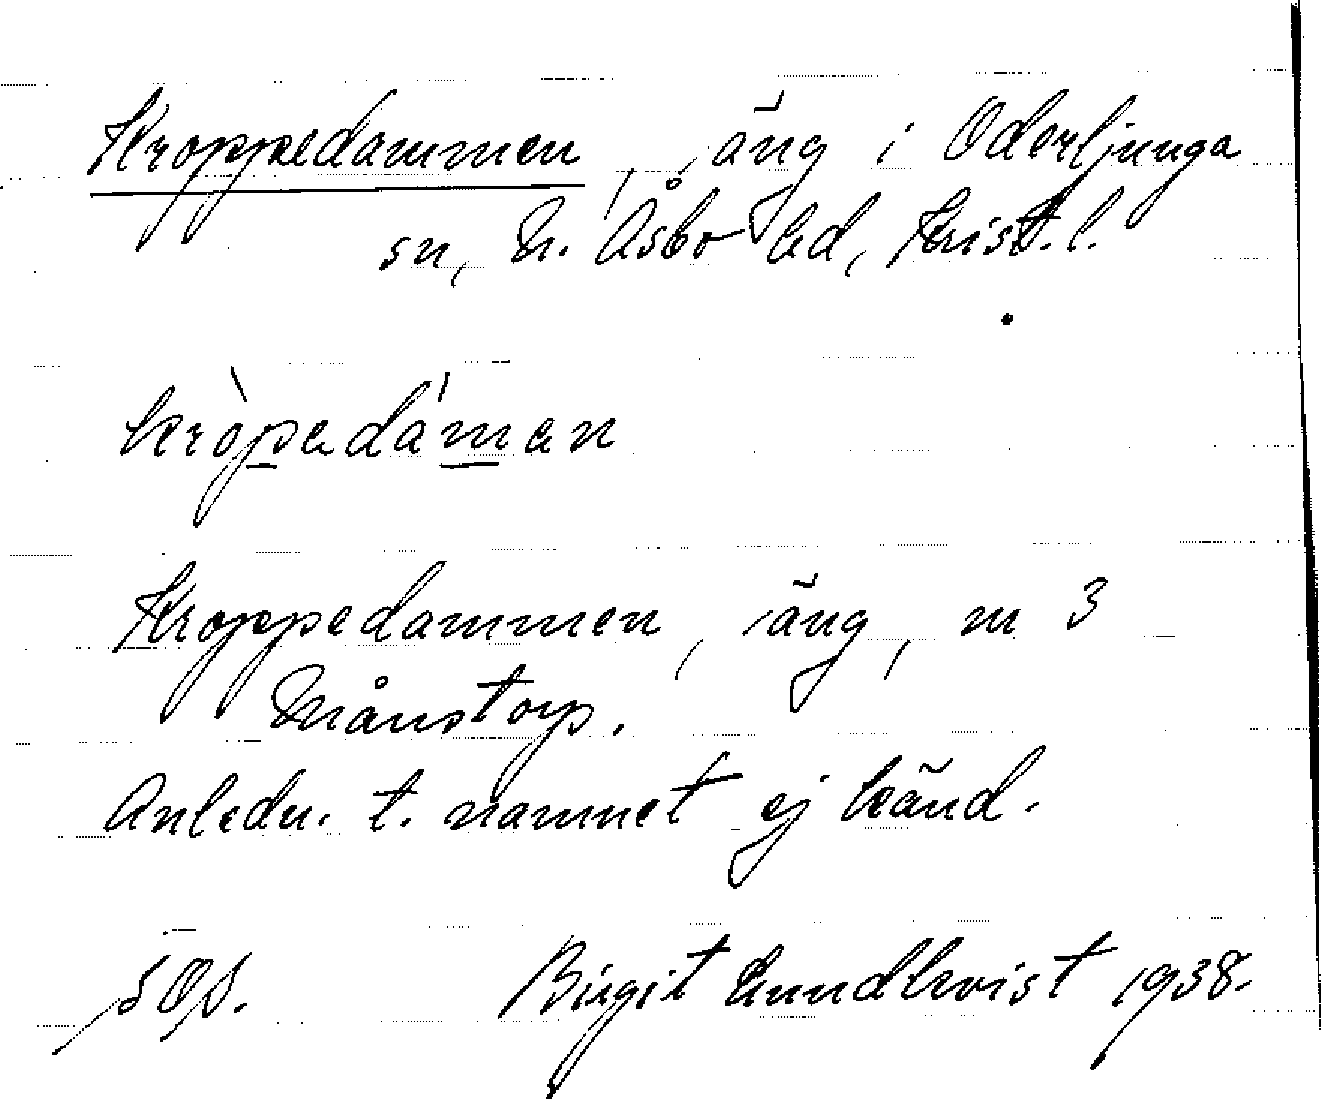 Kroppedammen, äng i Oderljunga
sn, N. Åsbo hd, Krist. l.
kròpedámen
Kroppedammen, äng, nr 3
Månstorp.
Anledn. t. namnet ej känd.
Birgit Lundkvist 1938.